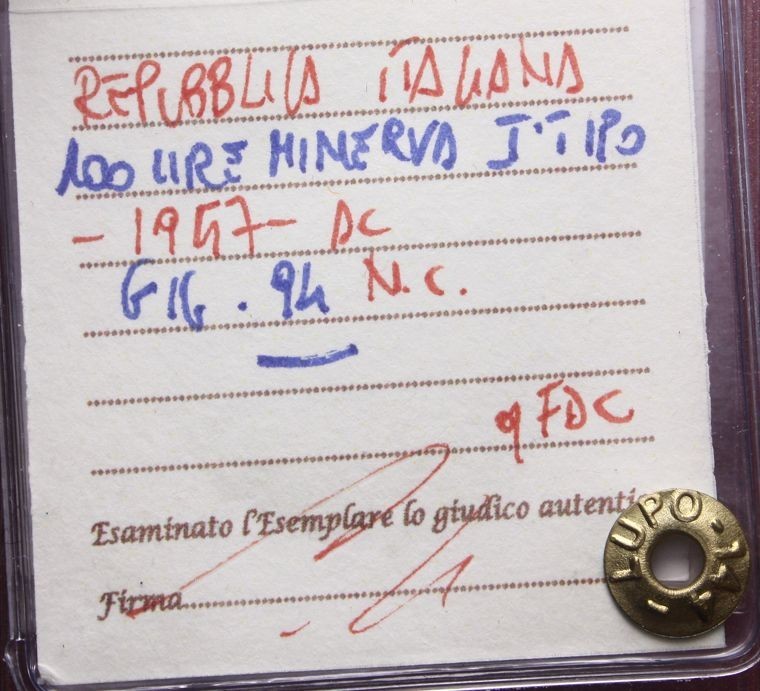 REPUBBLICA ITALIANA
100 LIRE MINERVA I° TIPO
- 1957 - AC
GIG. 94 N.C.
q FDC
Esaminato l'Esemplare lo giudico autenti
Firma
- LUPO -